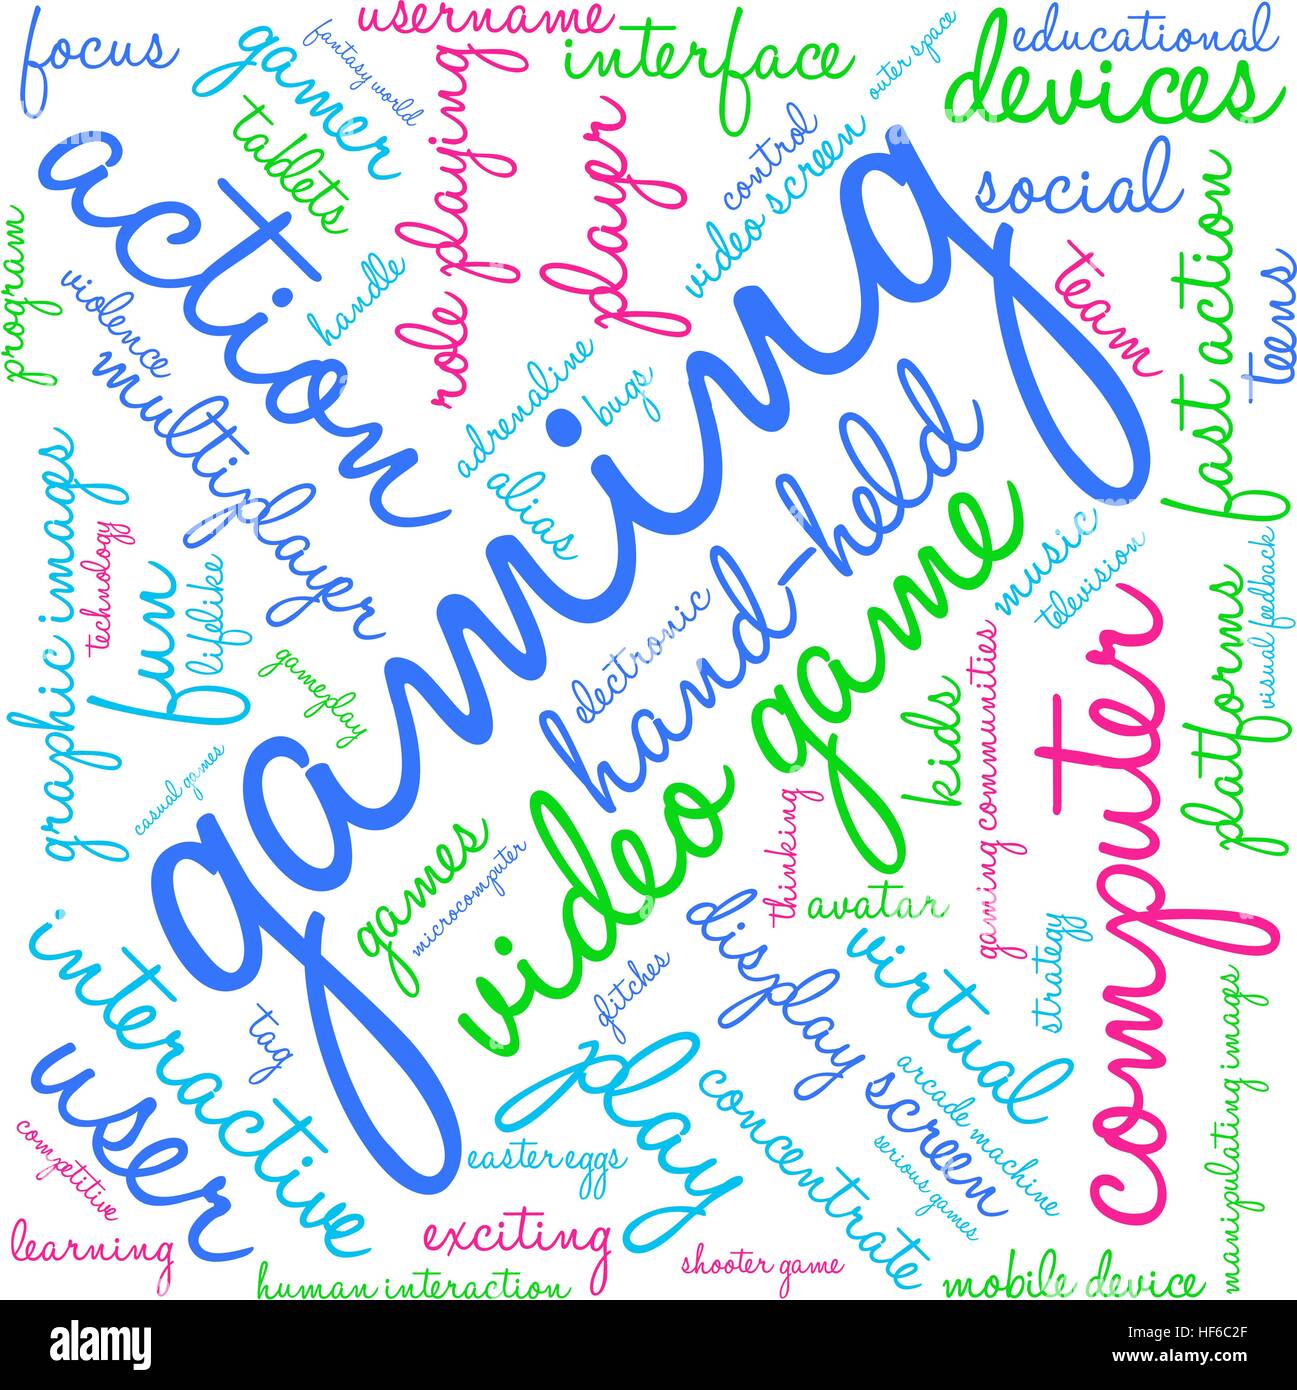 username
focus
gamer
fantasy world
interface
outer space
educational
devices
tablets
role playing
player
control
video screen
action
social
program
violence
handle
team
fast action
teens
multiplayer
adrenaline
bugs
alias
gaming
hand-held
graphic images
technology
fun
lifelike
gameplay
electronic
video game
music
television
visual feedback
platforms
kids
gaming communities
computer
casual games
games
microcomputer
thinking
avatar
interactive
display screen
virtual
strategy
glitches
tag
user
play
concentrate
arcade machine
serious games
manipulating images
competitive
easter eggs
learning
exciting
shooter game
human interaction
mobile device
alamy
Image ID: HF6C2F
www.alamy.com